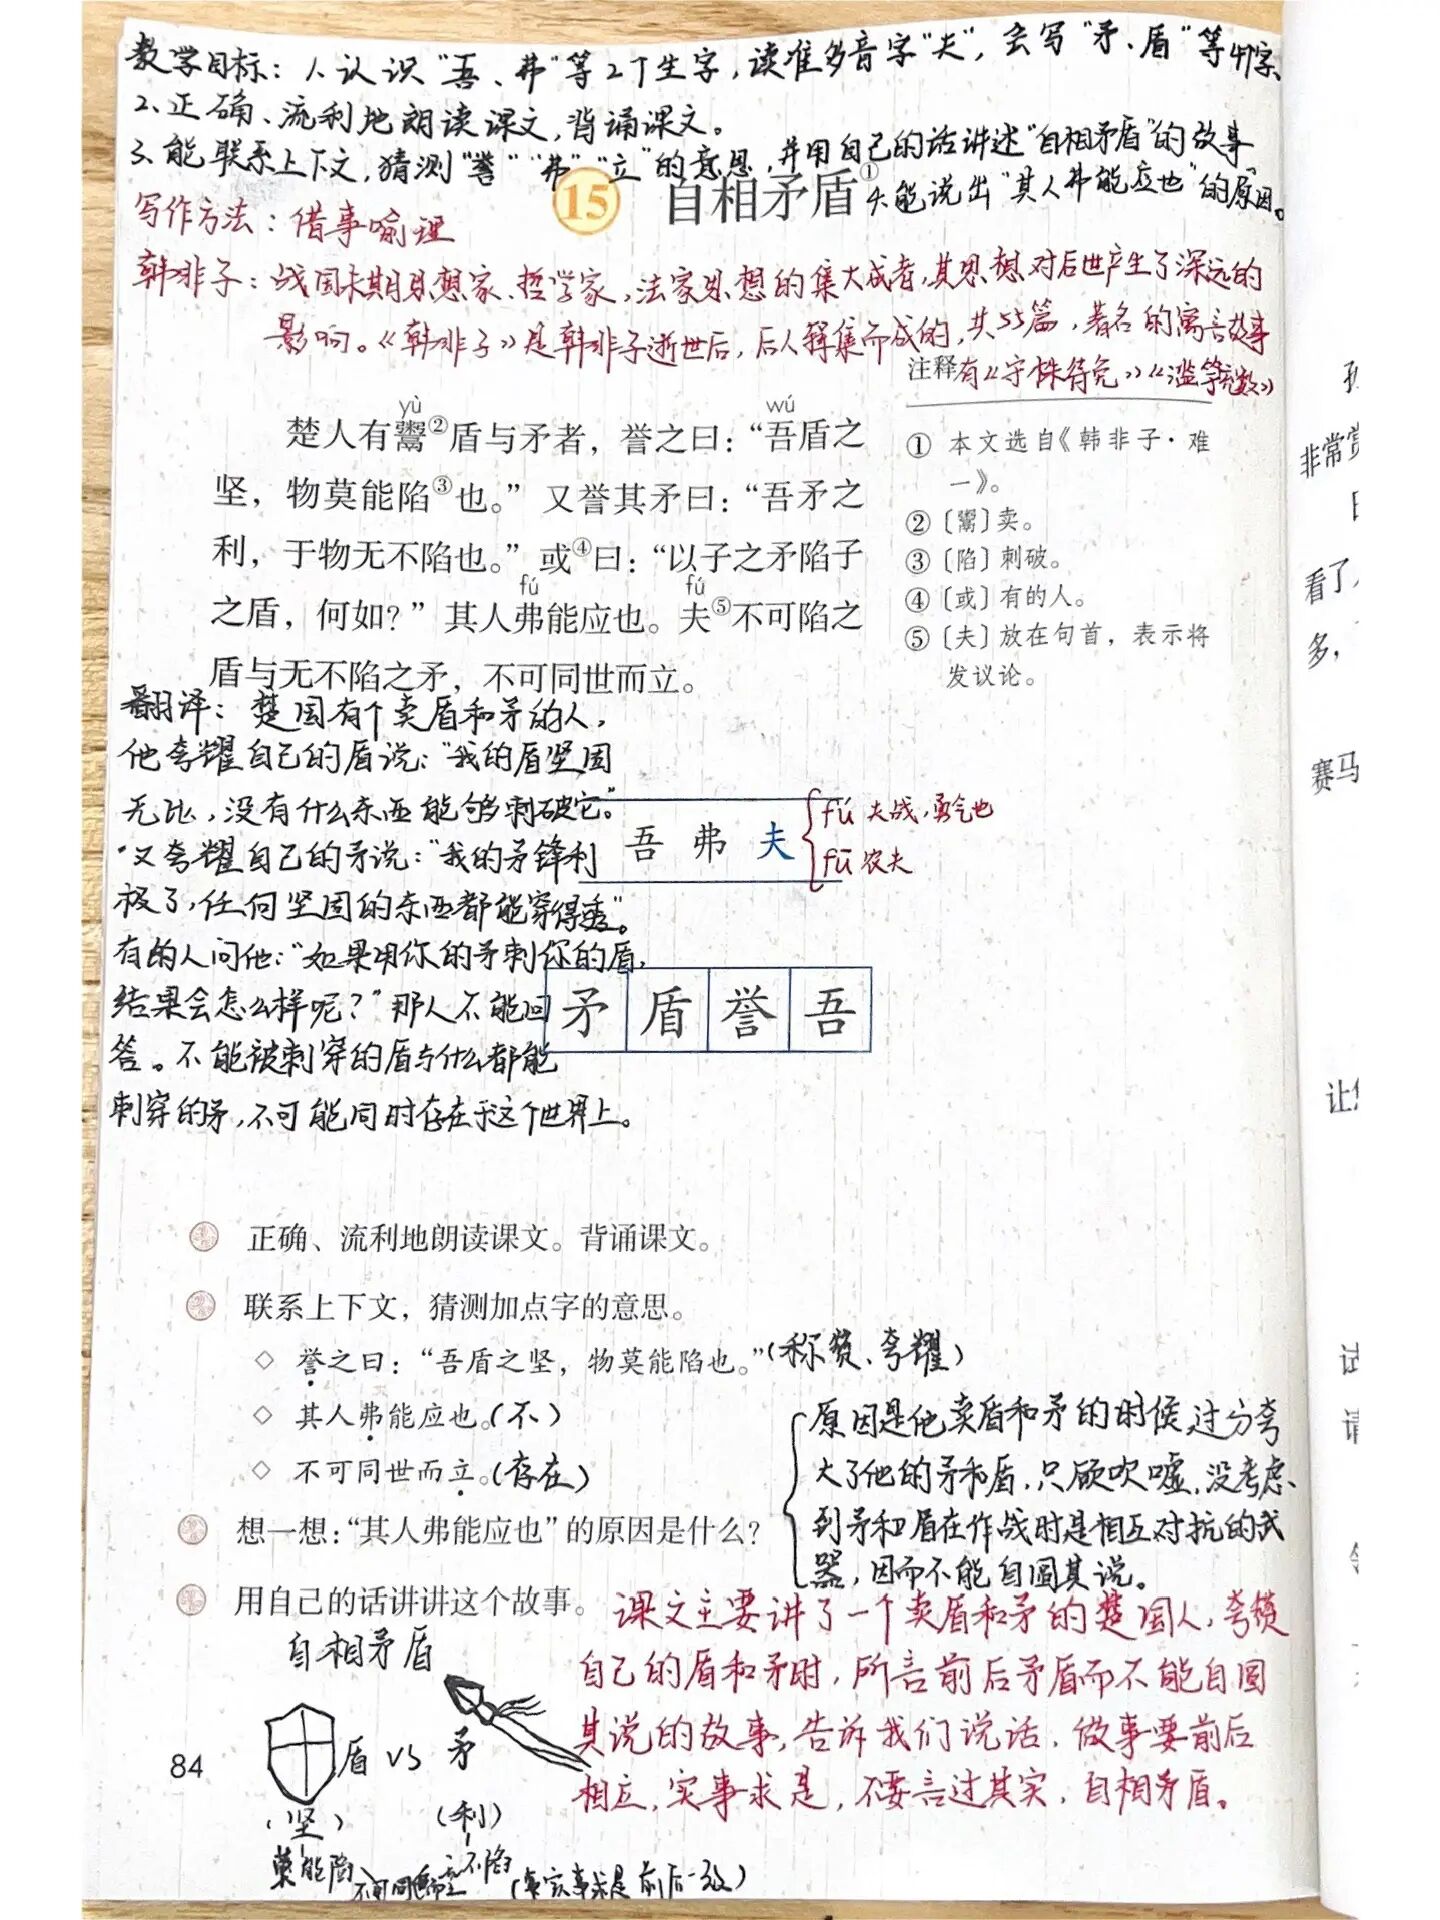 教学目标：1.认识“吾、弗”等2个生字，读准多音字“夫”，会写“矛、盾”等4个字。
2.正确、流利地朗读课文，背诵课文。
3.能联系上下文，猜测“誉”“弗”“立”的意思，并用自己的话讲述“自相矛盾”的故事。
15 自相矛盾①
4.能说出“其人弗能应也”的原因。
写作方法：借事喻理
韩非子：战国末期思想家、哲学家，法家思想的集大成者，其思想对后世产生了深远的
影响。《韩非子》是韩非子逝世后，后人辑集而成的，共55篇，著名的寓言故事
有《守株待兔》《滥竽充数》
yù wú
楚人有鬻②盾与矛者，誉之曰：“吾盾之
坚，物莫能陷③也。”又誉其矛曰：“吾矛之
利，于物无不陷也。”或④曰：“以子之矛陷子
fú fú
之盾，何如？”其人弗能应也。夫⑤不可陷之
盾与无不陷之矛，不可同世而立。
注释
① 本文选自《韩非子·难
一》。
② 〔鬻〕卖。
③ 〔陷〕刺破。
④ 〔或〕有的人。
⑤ 〔夫〕放在句首，表示将
发议论。
翻译：楚国有个卖盾和矛的人，
他夸耀自己的盾说：“我的盾坚固
无比，没有什么东西能够刺破它。”
又夸耀自己的矛说：“我的矛锋利
极了，任何坚固的东西都能穿得透”。
有的人问他：“如果用你的矛刺你的盾，
结果会怎么样呢？”那人不能回
答。不能被刺穿的盾与什么都能
刺穿的矛，不可能同时存在于这个世界上。
吾 弗 夫
fú 夫战，勇气也
fū 农夫
矛 盾 誉 吾
正确、流利地朗读课文。背诵课文。
联系上下文，猜测加点字的意思。
◇ 誉之曰：“吾盾之坚，物莫能陷也。”(称赞、夸耀)
◇ 其人弗能应也。(不)
◇ 不可同世而立。(存在)
想一想：“其人弗能应也”的原因是什么？
原因是他卖盾和矛的时候，过分夸
大了他的矛和盾，只顾吹嘘，没考虑
到矛和盾在作战时是相互对抗的武
器，因而不能自圆其说。
用自己的话讲讲这个故事。
课文主要讲了一个卖盾和矛的楚国人，夸赞
自己的盾和矛时，所言前后矛盾而不能自圆
其说的故事，告诉我们说话、做事要前后
相应，实事求是，不要言过其实，自相矛盾。
自相矛盾
盾 VS 矛
(坚) (利)
莫能陷 无不陷
不可同世而立 (实事求是 前后一致)
84
非常赏
看了
多，
赛马
让
试
请